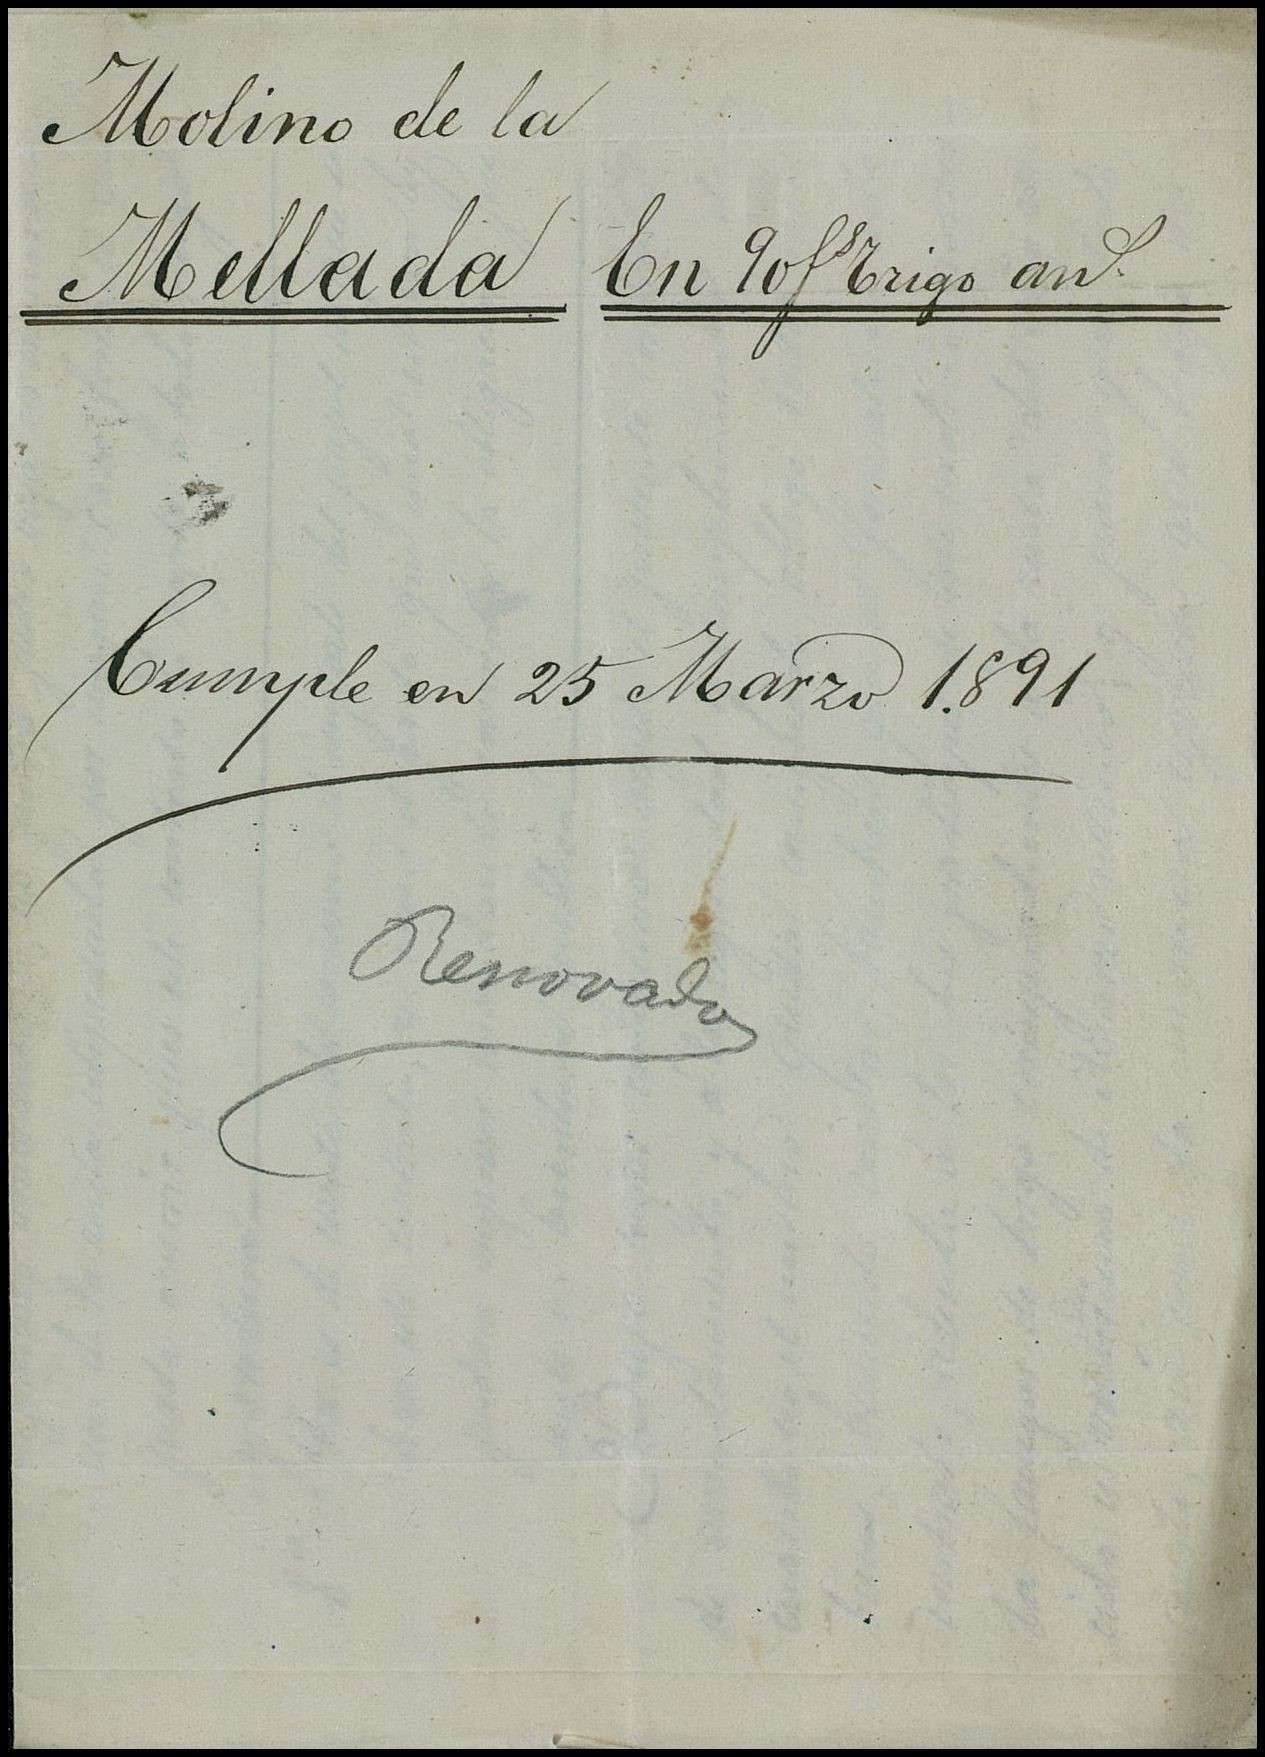 Molino de la
Mellada En 90 f.s Trigo an.l
Cumple en 25 Marzo 1.891
Renovado